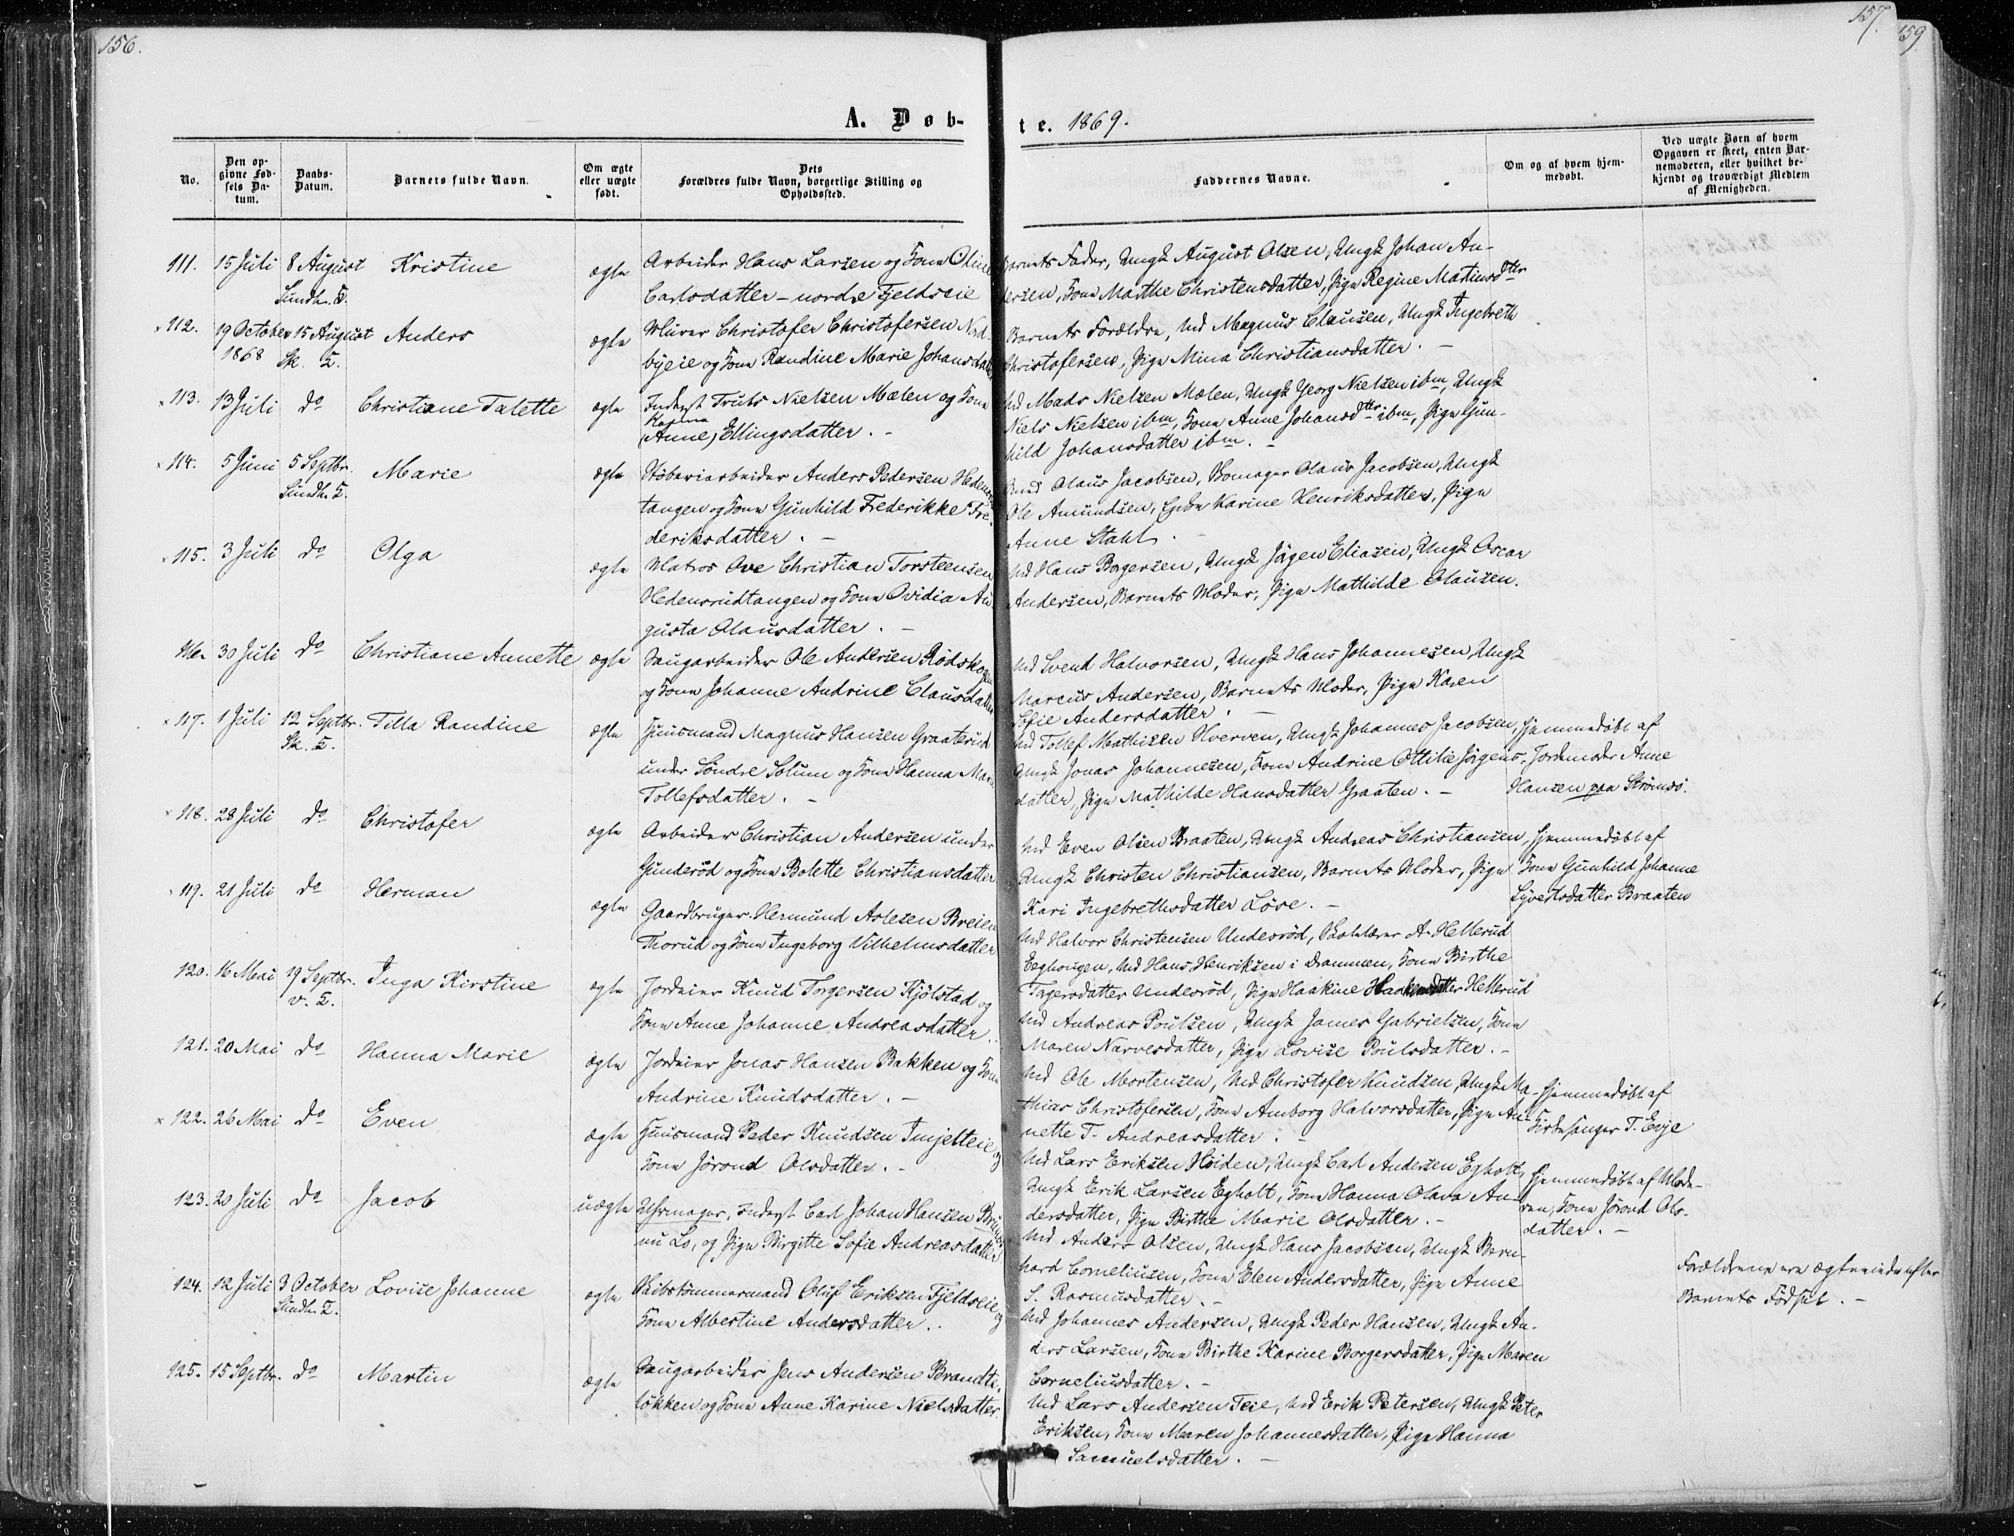 156.
157.
159
A. Døb-
te. 1869.
No.
Den op-
givne Fød-
sels Da-
tum.
Daabs-
Datum.
Barnets fulde Navn.
Om ægte
eller uægte
født.
Dets
Forældres fulde Navn, borgerlige Stilling og
Opholdssted.
Faddernes Navne.
Om og af hvem hjem-
medøbt.
Ved uægte Børn af hvem
Opgaven er skeet, enten Bar-
nemoderen, eller hvilket be-
kjendt og troværdigt Medlem
af Menigheden.
111. 15 Juli 8 August Kristine ægte Arbeider Hans Larsen og Kone Oline
Sundh. K.
Carlsdatter - nordre Fjeldseie
Barnets Fader, Ungk August Olsen, Ungk Johan An-
dersen, Kone Marthe Christensdatter, Pige Regine Matinsdtter
112. 19 October 15 August Anders ægte Murer Christofer Christofersen Nord-
1868 Sk. K.
byeie og Kone Randine Marie Johansdatter
Barnets Forældre, Md Magnus Clausen, Ungk Ingebreth
Christofersen, Pige Mina Christiansdatter. -
113. 13 Juli do Christiane Talette ægte Inderst Truls Nielsen Mælen og Kone
(Anne) Ellingsdatter. -
Md Mads Nielsen Mælen, Ungk Georg Nielsen ibm, Ungk
Niels Nielsen ibm, Kone Anne Johansdtter ibm, Pige Gun-
hild Johansdatter ibm. -
114. 5 Juni 5 Septbr. Marie ægte Støberiarbeider Anders Pedersen Hedens-
Sundh. K.
tangen og Kone Gunhild Frederikke Fre-
deriksdatter. -
Olaus Jacobsen, Skomager Olaus Jacobsen, Ungk
Ole Amundsen, Enke Karine Henriksdatter, Pige
Anne Stahl.
115. 3 Juli do Olga ægte Matros Ove Christian Torsteensen
Hedensrudtangen og Kone Ovidia Au-
gusta Olausdatter. -
Md Hans Borgersen, Ungk Jågen Eliasen, Ungk Oscar
Andersen, Barnets Moder, Pige Mathilde Olausen.
116. 30 Juli do Christiane Annette ægte Saugarbeider Ole Andersen Rødskogen
og Kone Johanne Andrine Clausdatter
Md Svend Halvorsen, Ungk Hans Johannesen, Ungk
Marcus Andersen, Barnets Moder, Pige Karen
Sofie Andersdatter. -
117. 1 Juli 12 Septbr. Tilla Randine ægte Huusmand Magnus Hansen Graaterud
Sk. K.
under Søndre Solum og Kone Hanna Mar
Tollefsdatter. -
Md Tollef Mathisen Hverven, Ungk Johannes Jacobsen,
Ungk Jonas Johannesen, Kone Andrine Ottilie Jørgens-
datter, Pige Mathilde Hansdatter Graaten. -
Hjemmedøbt af
Jordmoder Anne
Hansen paa Strømsø.
118. 28 Juli do Christofer ægte Arbeider Christian Andersen under
Gunderød og Kone Bolette Christiansdatter
Md Even Olsen Braaten, Ungk Andreas Christiansen,
Ungk Christen Christiansen, Barnets Moder, Pige
Kari Ingebrethsdatter Løve. -
Hjemmedøbt af
Kone Gunhild Johanne
Syvertsdatter Braaten
119. 21 Juli do Herman ægte Gaardbruger Hermund Aslesen Breien
Thorud og Kone Ingeborg Vilhelmsdatter
Md Halvor Christensen Undersrød, Skolelærer A. Hellerud
Eeghougen, Md Hans Henriksen i Drammen, Kone Birthe
Tagersdatter Undersrød, Pige Haakine Haakensdatter Hellerud
120. 16 Mai 19 Septbr. Inga Kirstine ægte Jordeier Knud Torgersen Kjølstad og
v. K.
Kone Anne Johanne Andreasdatter.
Md Andreas Poulsen, Ungk James Gabrielsen, Kone
Maren Narvesdatter, Pige Lovise Poulsdatter. -
121. 20 Mai do Hanna Marie ægte Jordeier Jonas Hansen Bakken og Kone
Andrine Knudsdatter. -
Md Ole Mortensen, Md Christofer Knudsen, Ungk Ma-
thias Christofersen, Kone Amborg Halvorsdatter, Pige An-
nette T. Andreasdatter. -
Hjemmedøbt af
Kirkesanger T. Eije
122. 26 Mai do Even ægte Huusmand Peder Knudsen Imjelteie og
Kone Jørond Olsdatter. -
Md Lars Eriksen Høiden, Ungk Carl Andersen Egholt,
Ungk Erik Larsen Egholt, Kone Hanna Olava An-
dersdatter, Pige Birthe Marie Olsdatter. -
Hjemmedøbt af Mode-
ren, Kone Jørond Ols-
datter. -
123. 20 Juli do Jacob uægte Uhrmager, Inderst Carl Johan Hansen
nu Lo, og Pige Birgitte Sofie Andreasdatter
Md Anders Olsen, Ungk Hans Jacobsen, Ungk Bern-
hard Corneliusen, Kone Elen Andersdatter, Pige Anne
S. Rasmusdatter. -
Forældrene ere ægteviede efter
Barnets Fødsel. -
124. 12 Juli 3 October Lovise Johanne ægte Skibstømmermand Oluf Eriksen Fjeldseie og
Sundh. K.
Kone Albertine Andersdatter.
Md Johannes Andersen, Ungk Peder Hansen, Ungk An-
ders Larsen, Kone Birthe Karine Borgersdatter, Pige Maren
Corneliusdatter. -
125. 15 Septbr. do Martin ægte Saugarbeider Jens Andersen Brandte-
løkken og Kone Anne Karine Nielsdatter
Md Lars Andersen Teie, Md Erik Petersen, Ungk Peter
Eriksen, Kone Maren Johannesdatter, Pige Hanna
Samuelsdatter. -